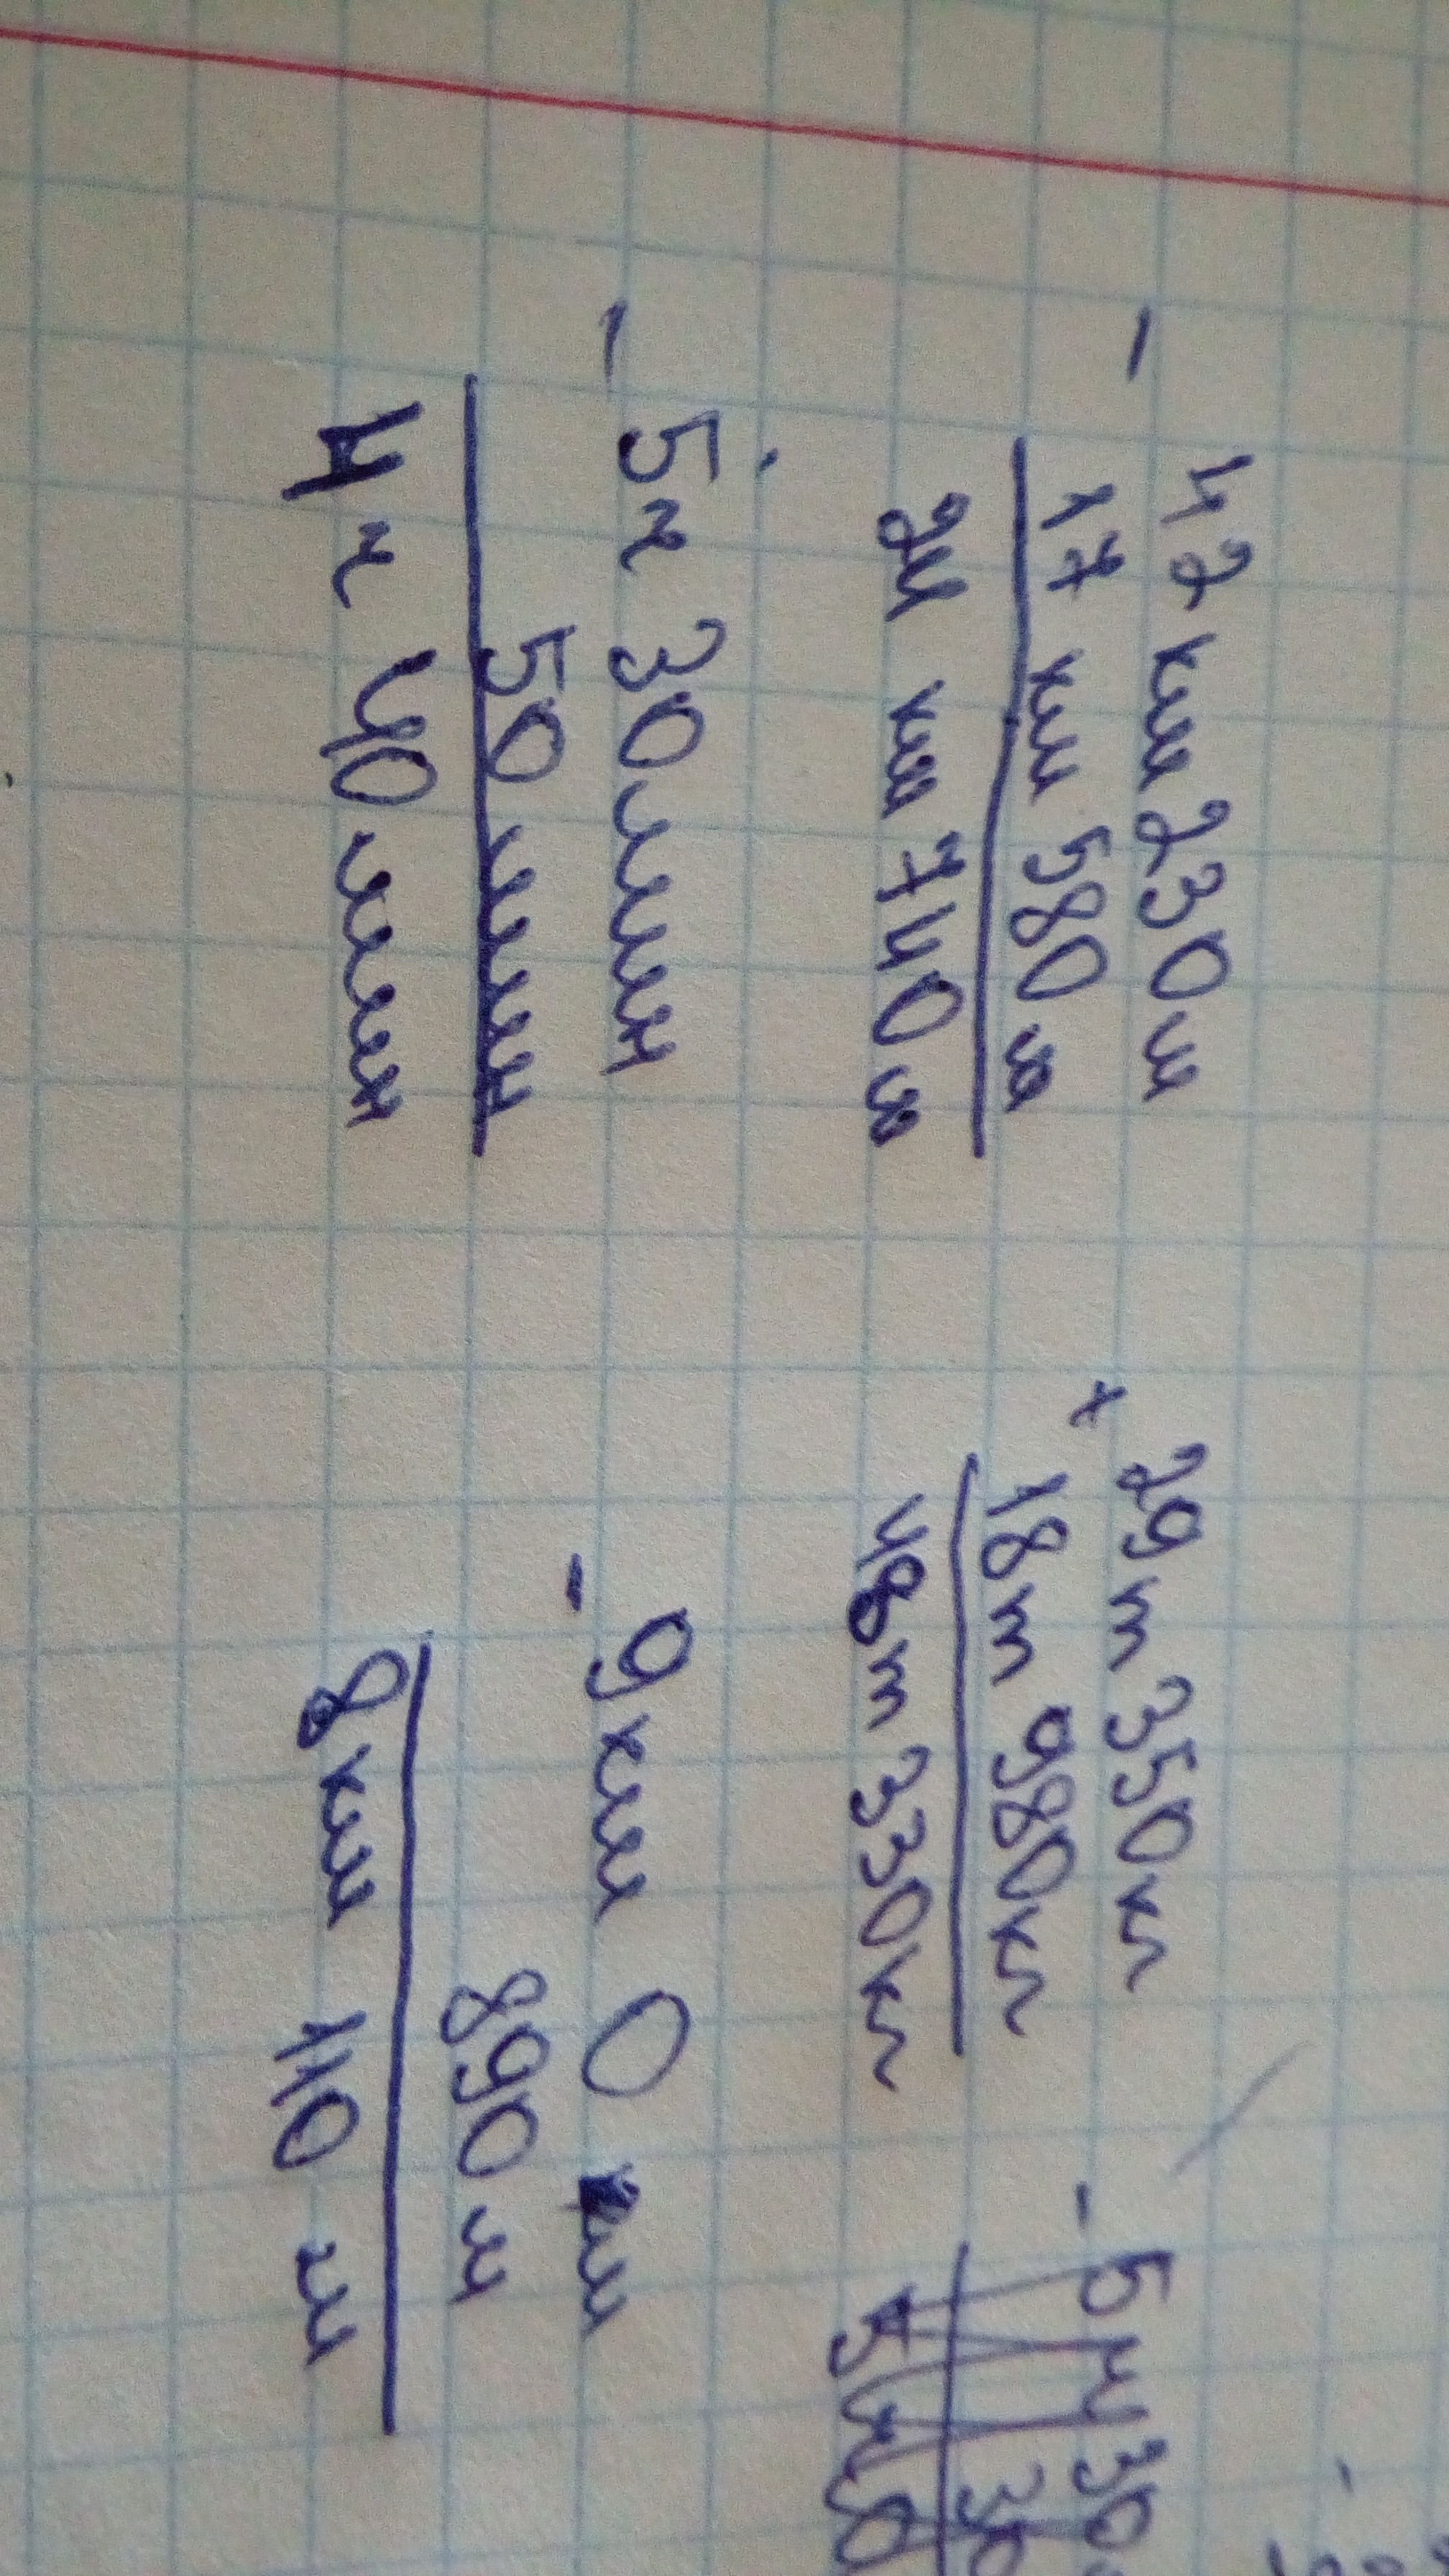 - 42 км 230 м
17 км 580 м
24 км 740 м
+ 29 т 350 кг
18 т 980 кг
48 т 330 кг
- 5 ч 30
30
- 5 ч 30 мин
50 мин
4 ч 40 мин
- 9 км 0 м
890 м
8 км 110 м